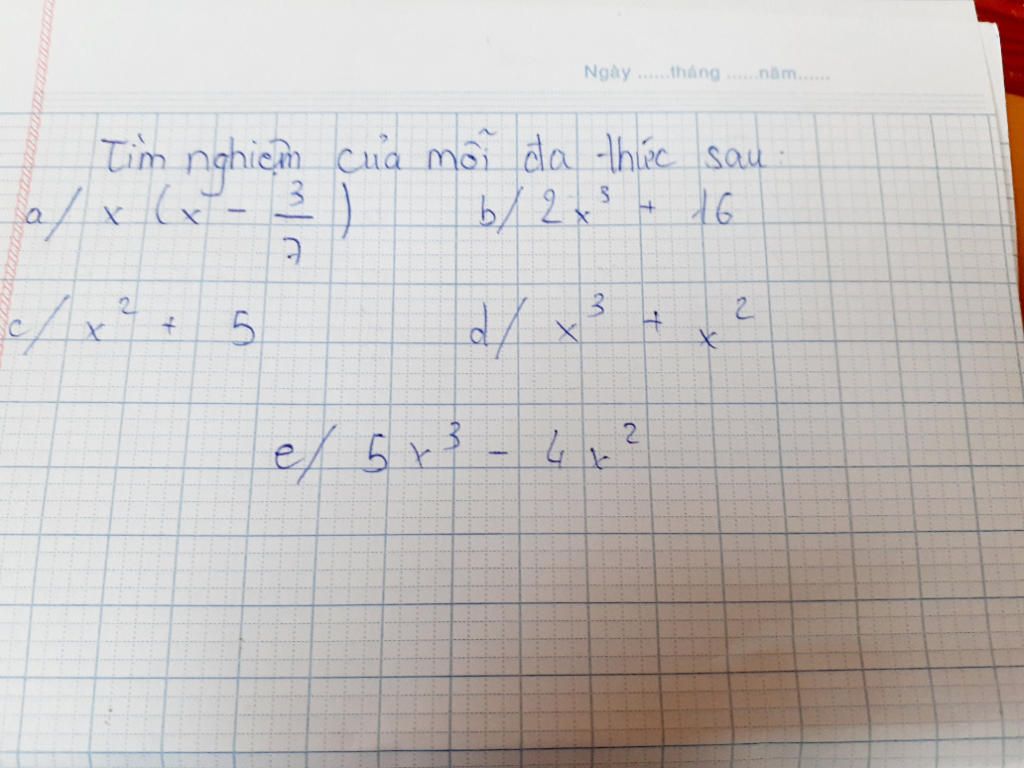 Ngày ......tháng ......năm......
Tìm nghiệm của mỗi đa thức sau:
a/ x (x - 3/7) b/ 2x³ + 16
c/ x² + 5 d/ x³ + x²
e/ 5x³ - 4x²